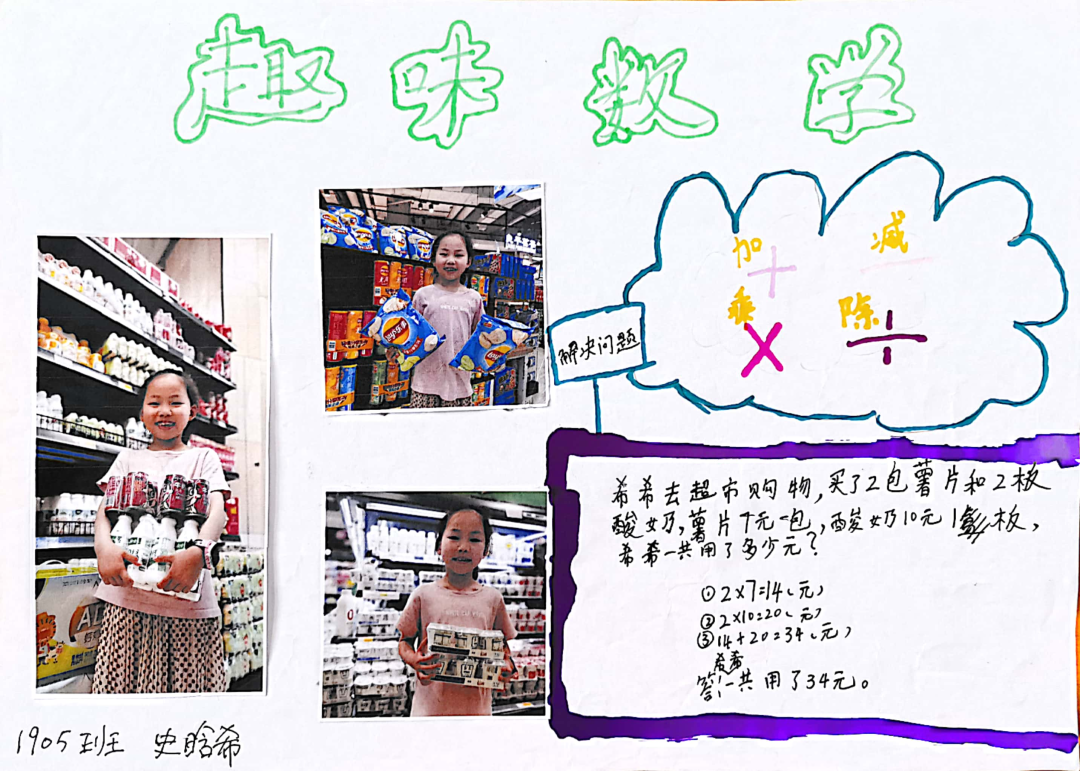 趣味数学
加 减
+ −
乘 除
× ÷
解决问题
希希去超市购物,买了2包薯片和2板
酸奶,薯片7元一包,酸奶10元1板,
希希一共用了多少元?
①2×7=14(元)
②2×10=20(元)
③14+20=34(元)
希希
答:一共用了34元。
1905班 史晗希